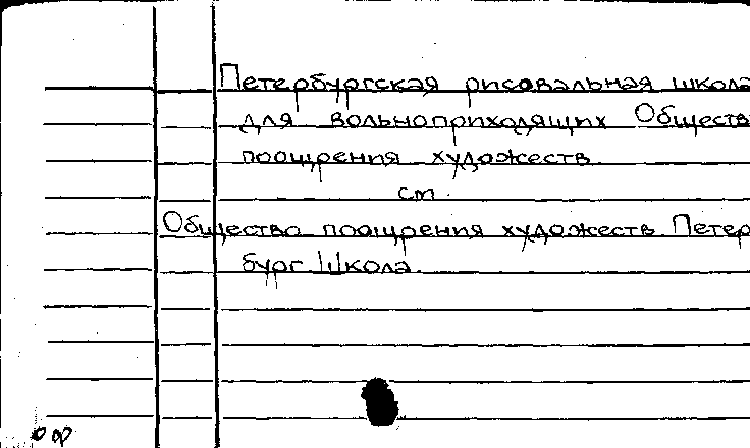 Петербургская рисовальная школа
для вольноприходящих Обществ
поощрения художеств
см.
Общество поощрения художеств. Петер
бург. Школа.